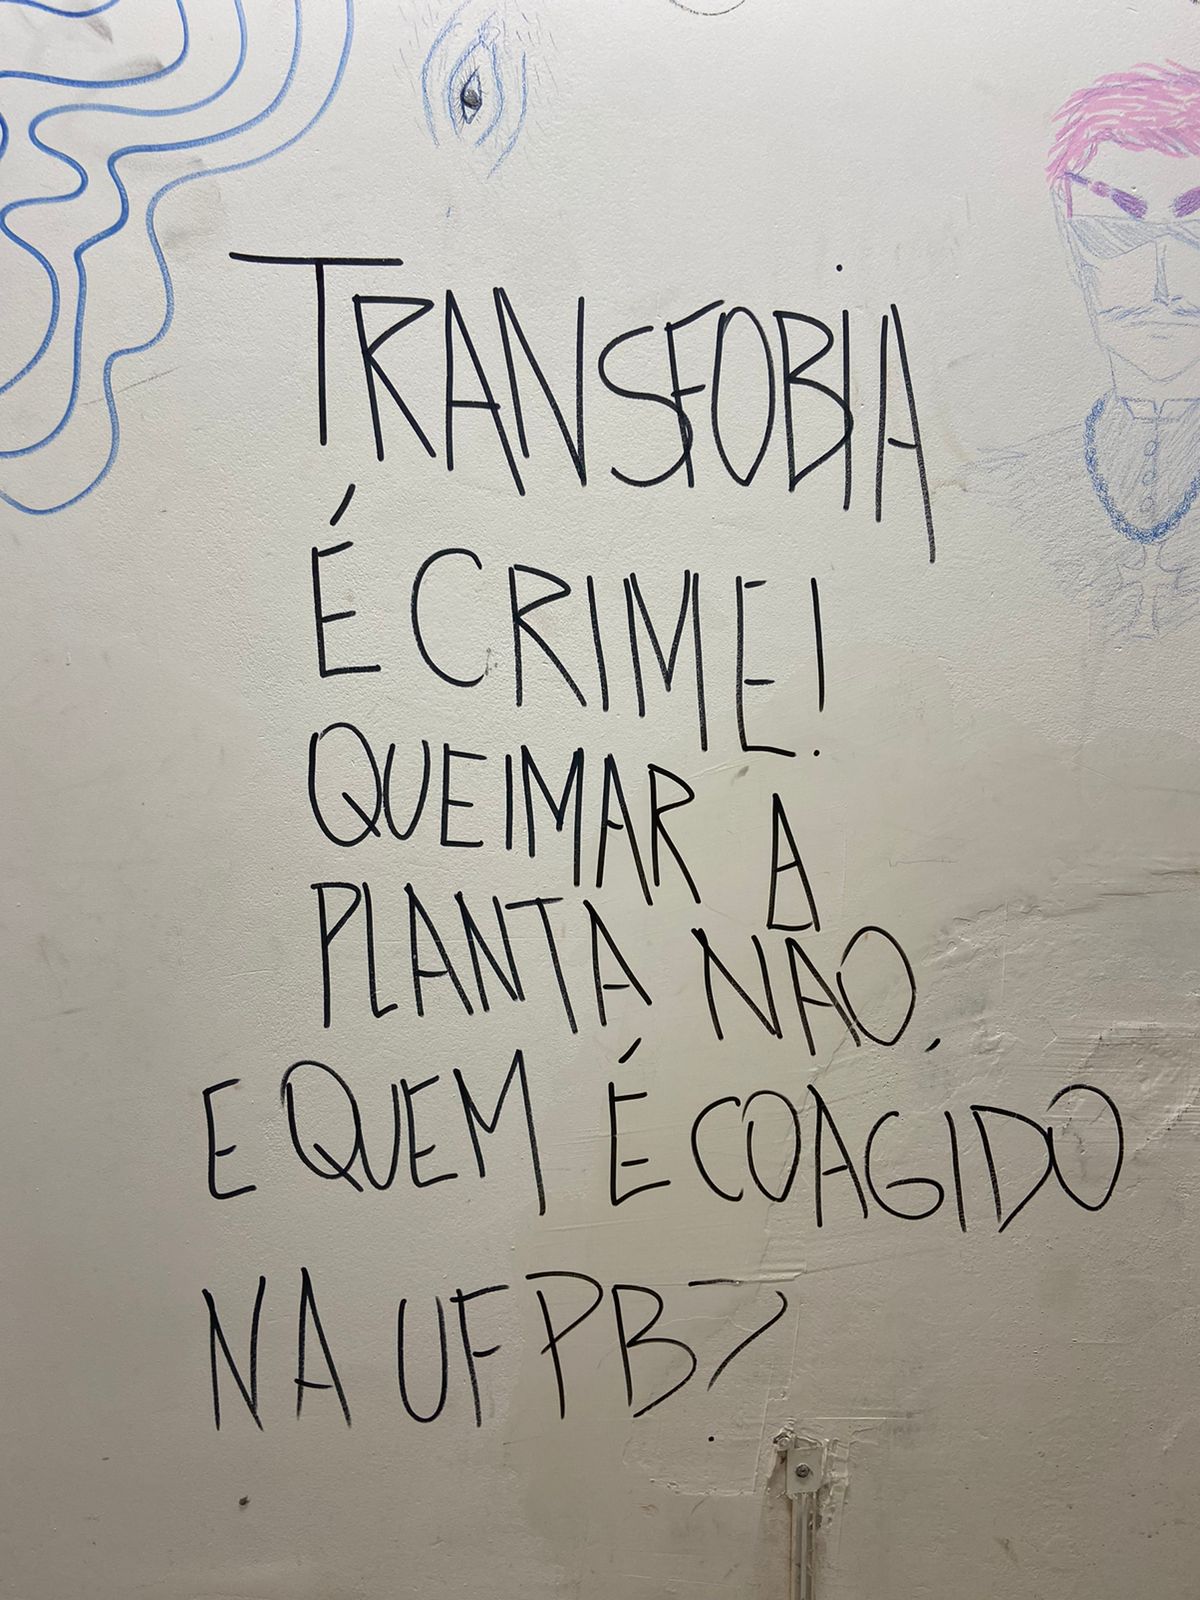 TRANSFOBIA
É CRIME!
QUEIMAR A
PLANTA NAO.
E QUEM É COAGIDO
NA UFPB?